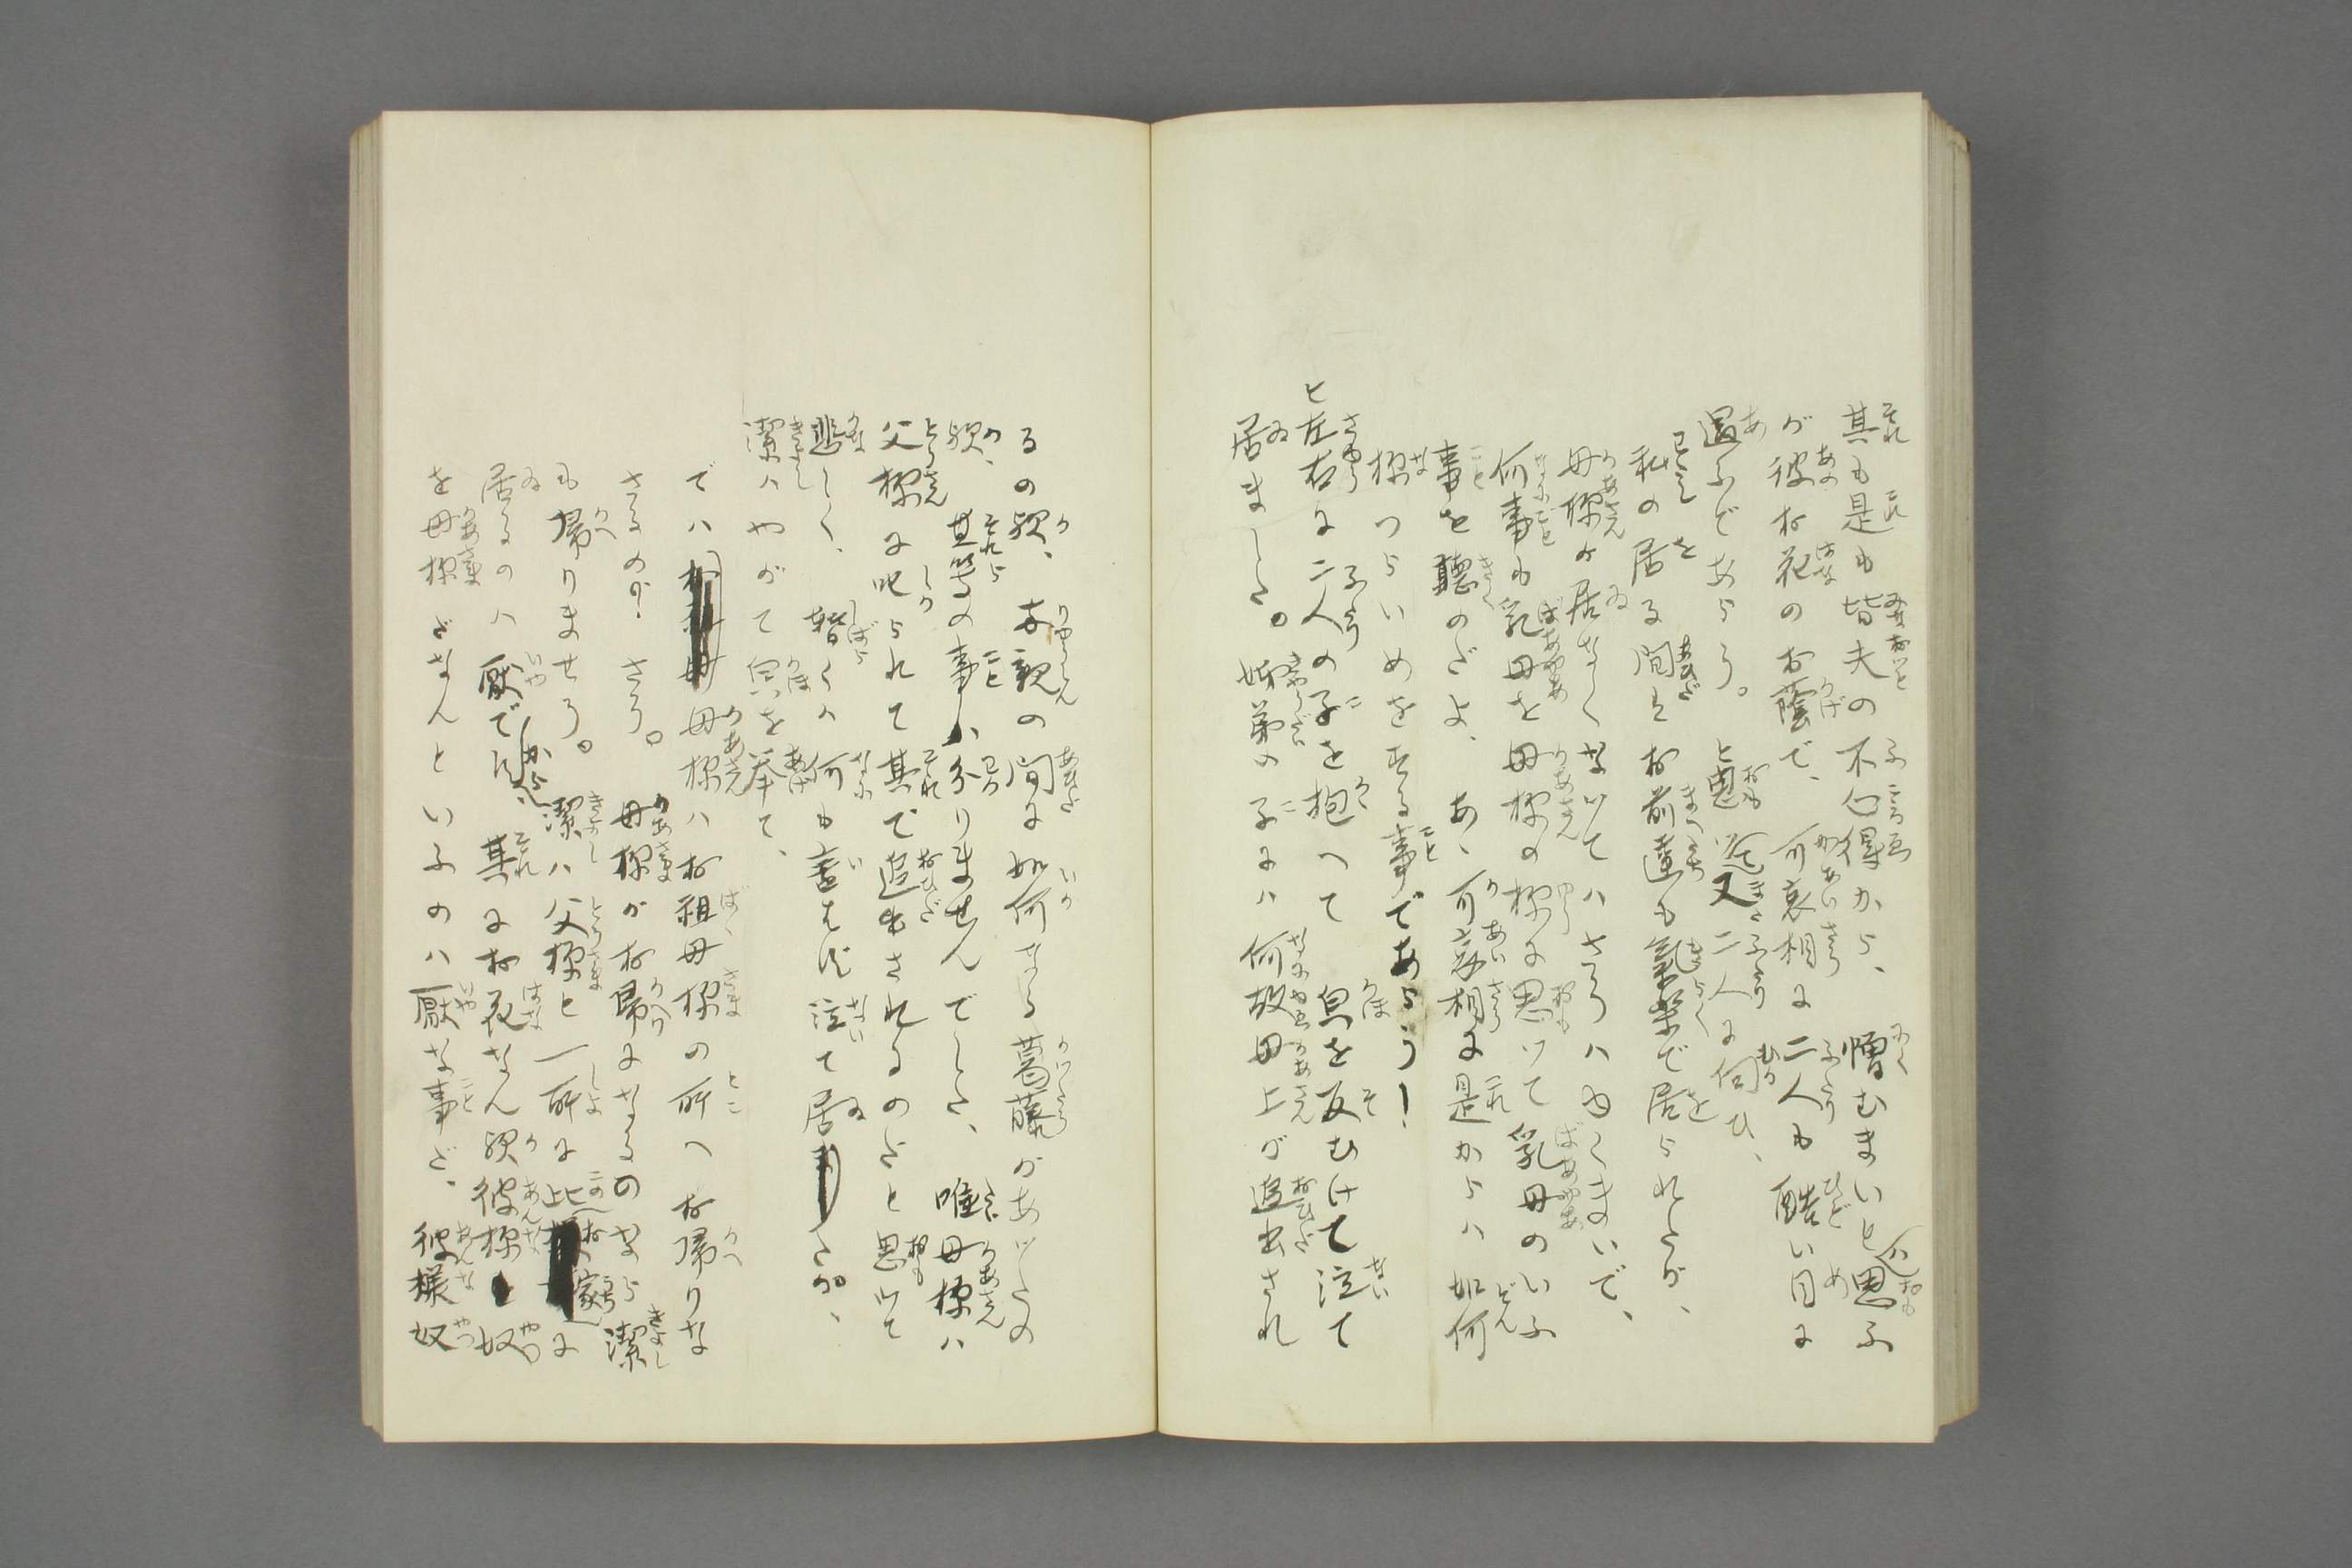 其も是も皆夫の不心得から、憎むまいと思ふ
が彼お花のお蔭で、可哀相に二人も酷い目に
遇ふであらう。と思ツて又二人に向ひ、
私の居る間はお前達も氣樂で居られたが、
母樣が居なくなツてハさうハゆくまいで、
何事も乳母を母樣の樣に思ツて乳母のいふ
事を聽のだよ、あゝ可哀相に是からハ如何
樣つらいめをする事であらう!
と左右に二人の子を抱へて 皃を反むけて泣て
居ました。姉弟の子にハ何故母上が追出され
るの歟、両親の間に如何なる葛藤があツたの
歟、其等の事ハ分りませんでした、唯母樣ハ
父樣に叱られて其で追出されるのだと思ツて
悲しく、暫くハ何も言はず泣て居たが、
潔ハやがて皃を挙て、
でハ母樣ハお祖母樣の所へお帰りな
さるのか?さう。母樣がお帰になるのなら潔
も帰りませう。潔ハ父樣と一所に此お家に
居るのハ厭ですから、其にお花なん歟彼樣奴
を母樣だなんといふのハ厭な事だ、彼樣奴